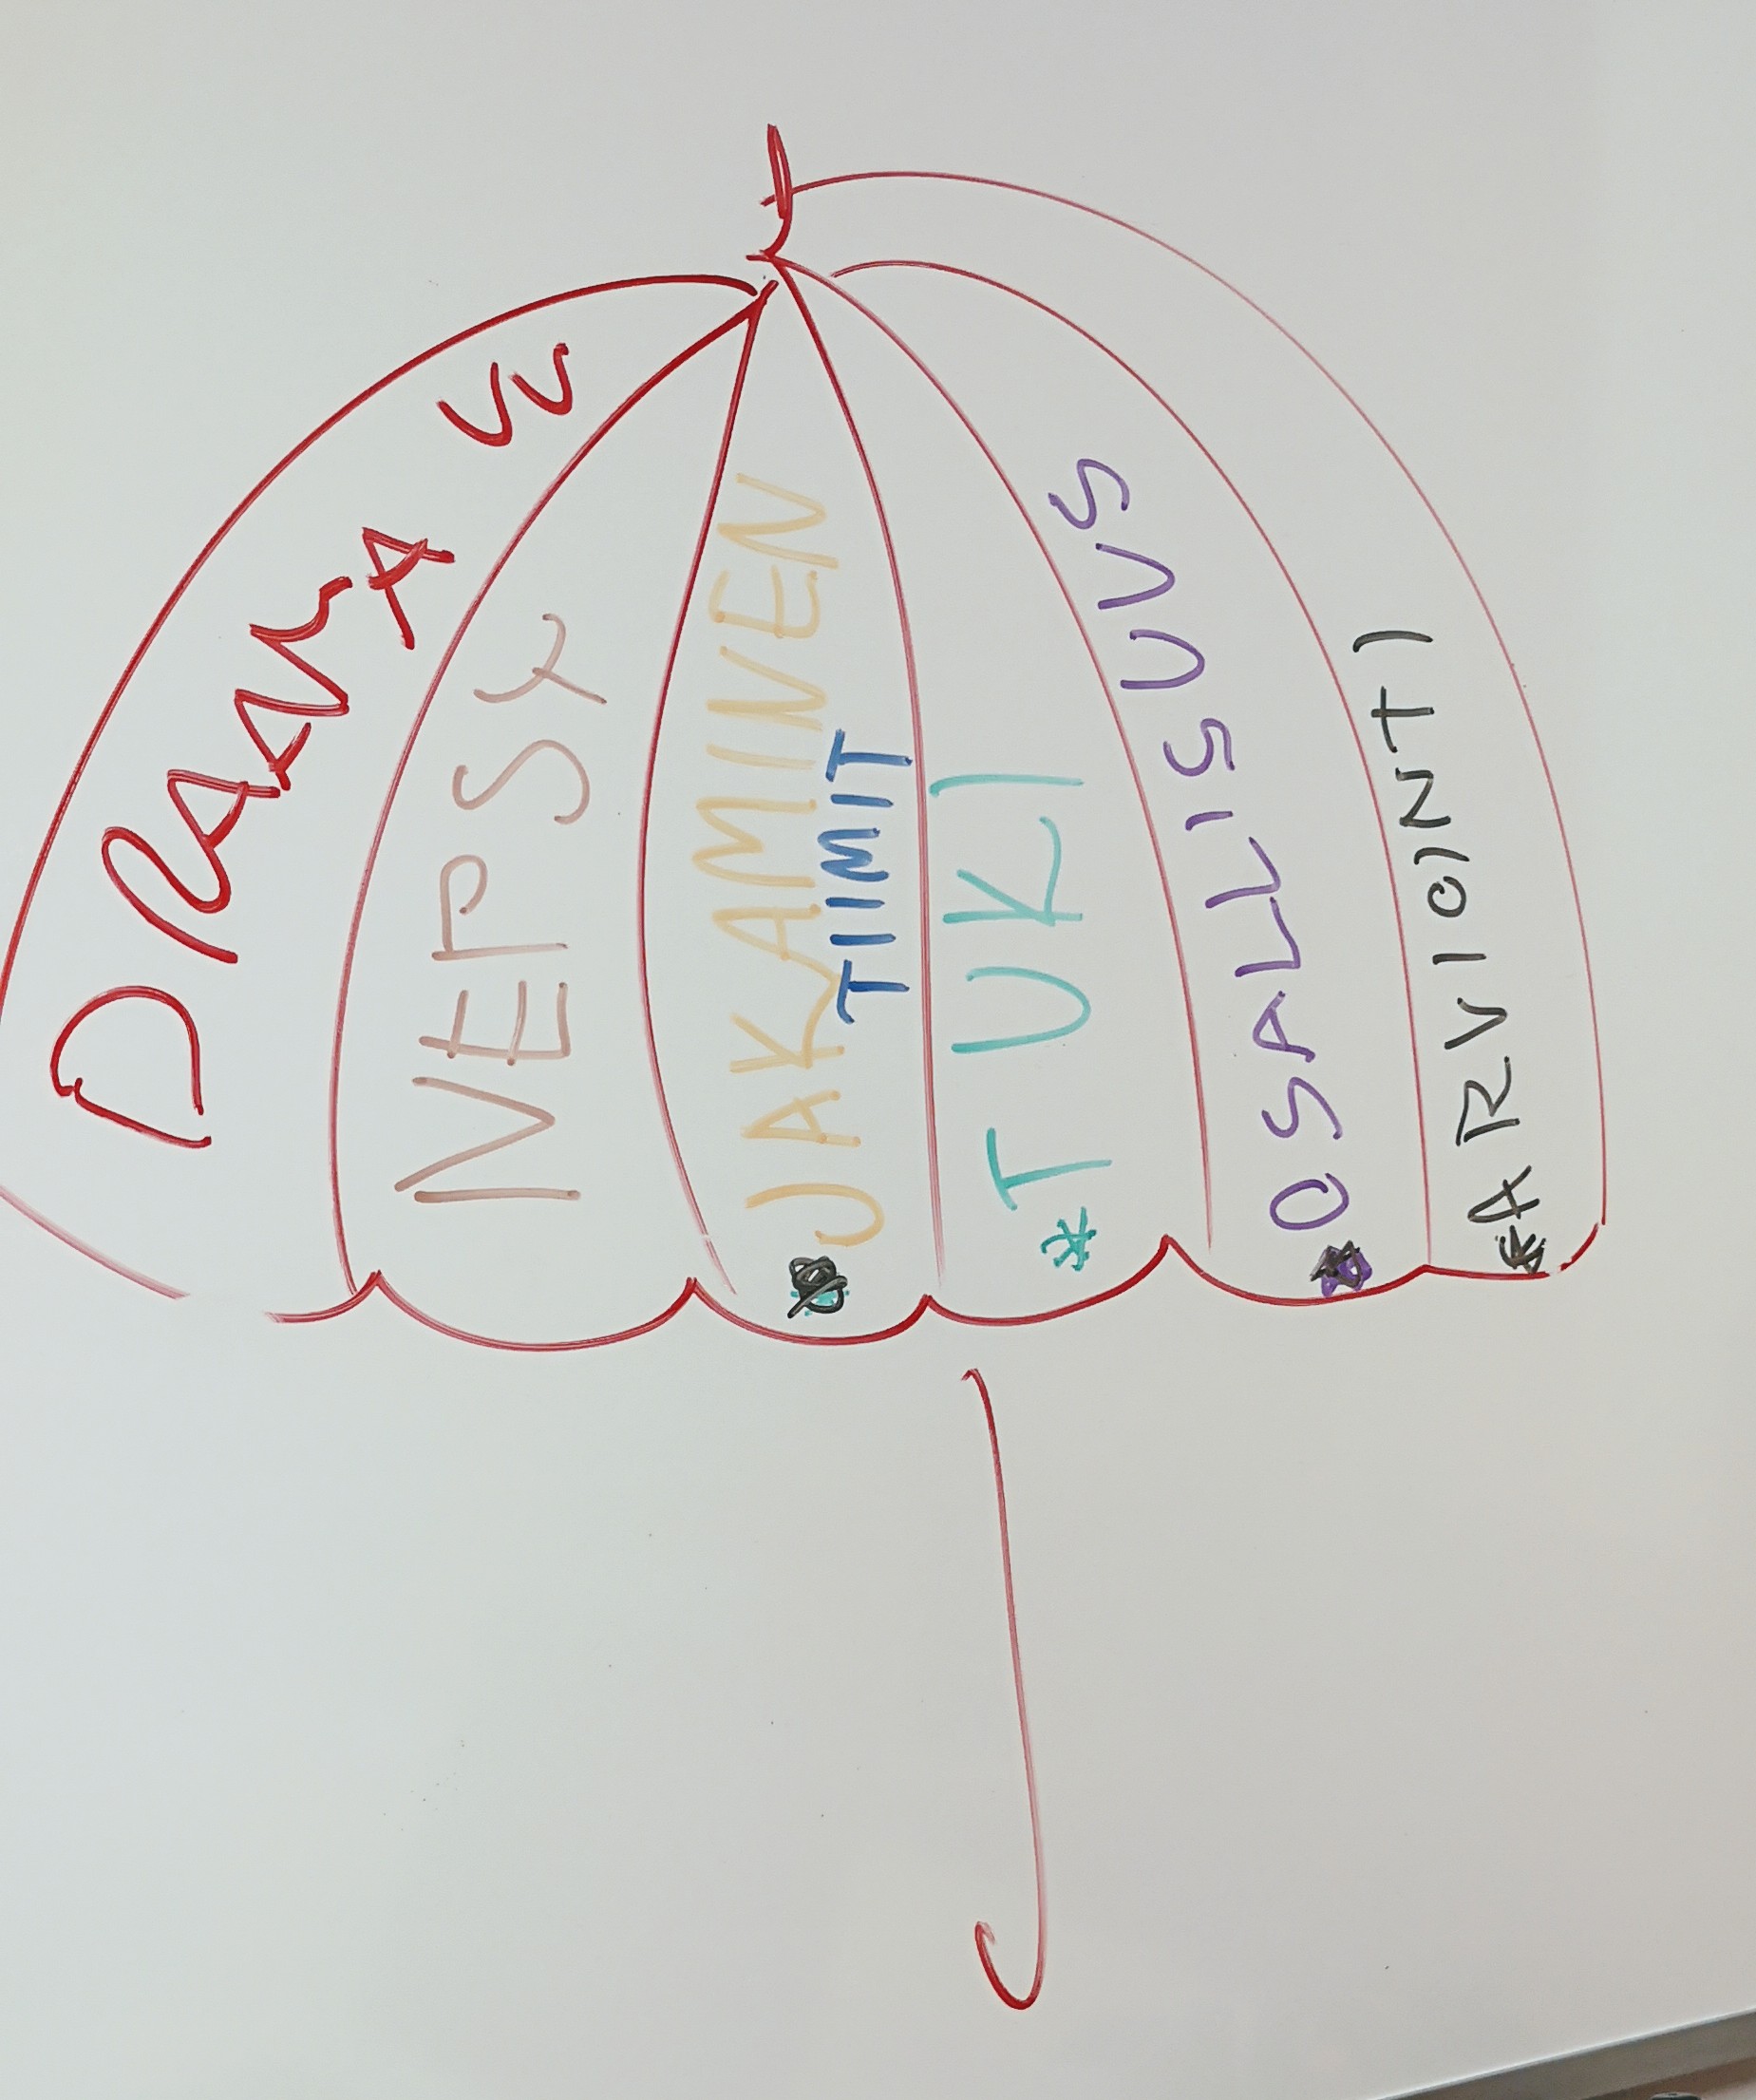 DRAAMA VV
NEPSY
JAKAMINEN
TIIMIT
* TUKI
* OSALLISUUS
* ARVIOINTI